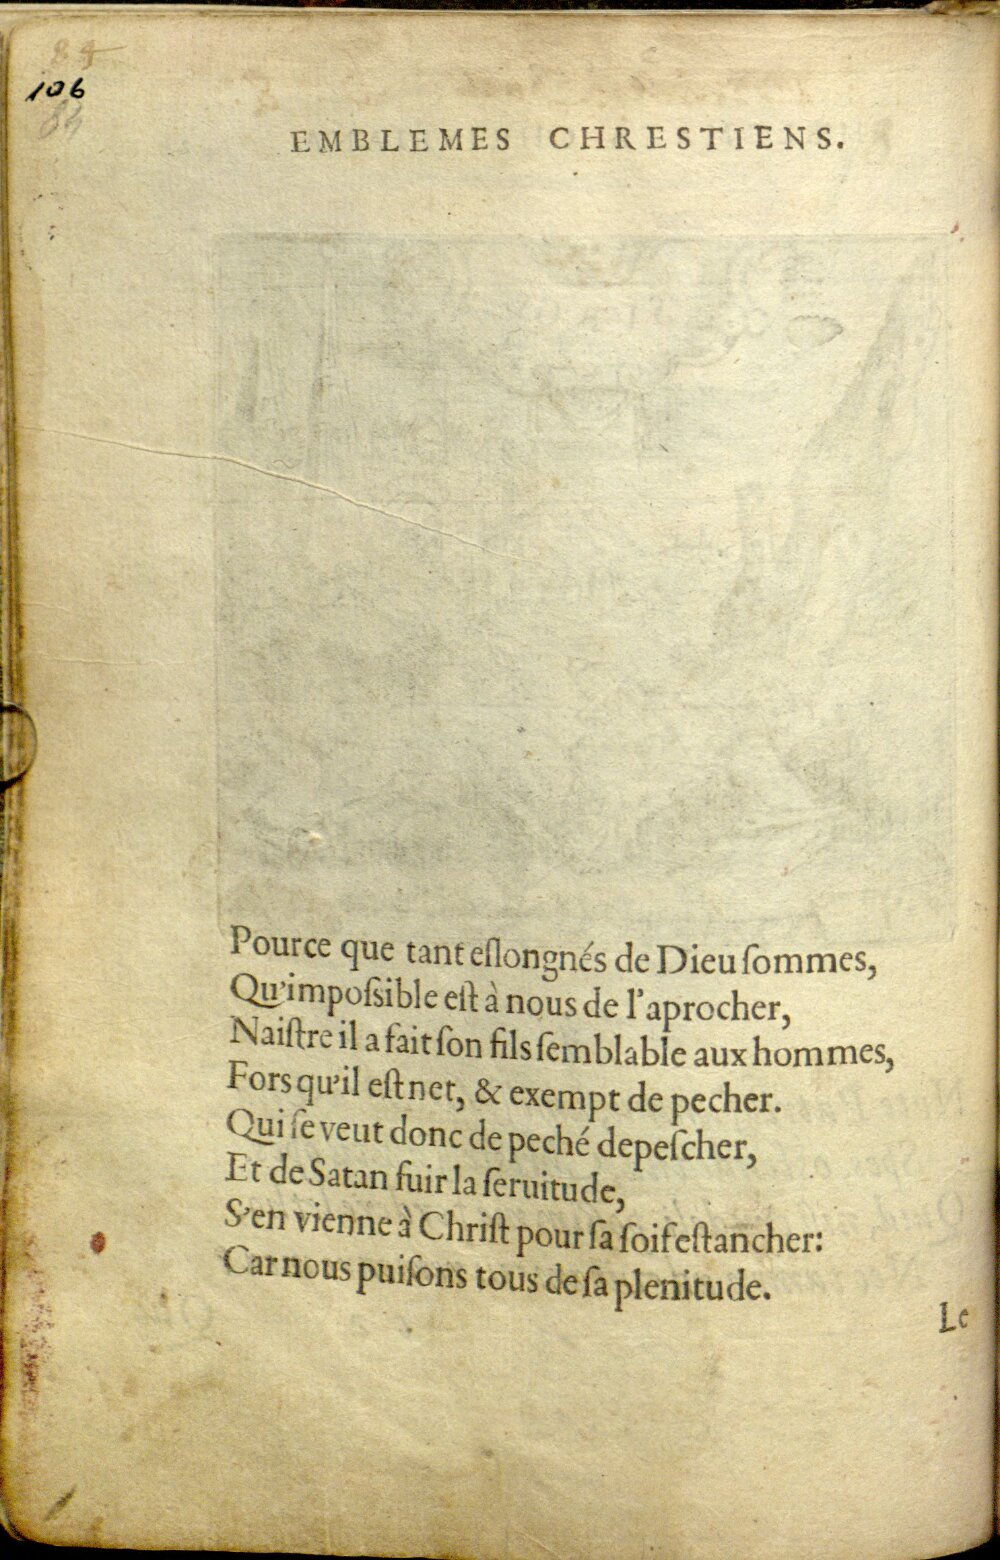 84
106
84
EMBLEMES CHRESTIENS.
Pource que tant eſlongnés de Dieu ſommes,
Qu'impoſsible eſt à nous de l'aprocher,
Naiſtre il a fait ſon fils ſemblable aux hommes,
Fors qu'il eſt net, & exempt de pecher.
Qui ſe veut donc de peché depeſcher,
Et de Satan fuir la ſeruitude,
S'en vienne à Chriſt pour ſa ſoif eſtancher:
Car nous puiſons tous de ſa plenitude.
Le